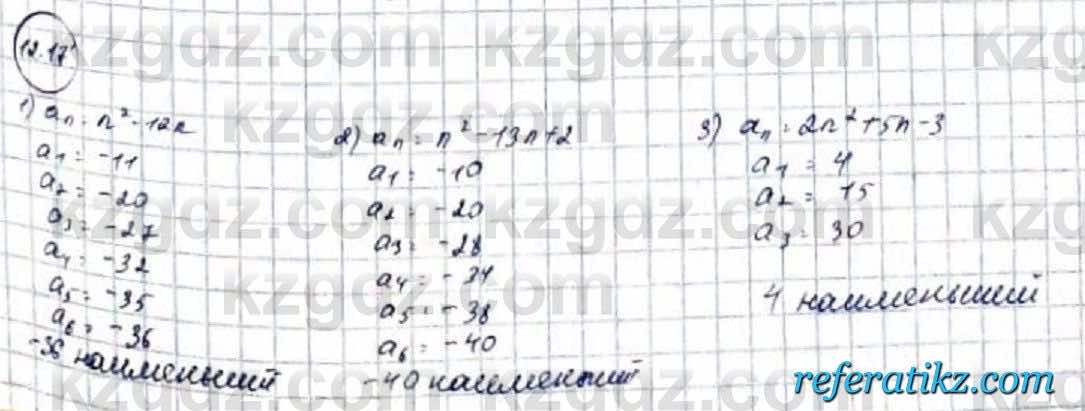 12.17
1) aₙ = n² - 12n
a₁ = -11
a₂ = -20
a₃ = -27
a₄ = -32
a₅ = -35
a₆ = -36
-36 наименьший
2) aₙ = n² - 13n + 2
a₁ = -10
a₂ = -20
a₃ = -28
a₄ = -34
a₅ = -38
a₆ = -40
-40 наименьший
3) aₙ = 2n² + 5n - 3
a₁ = 4
a₂ = 15
a₃ = 30
4 наименьший
kzgdz.com
referatikz.com